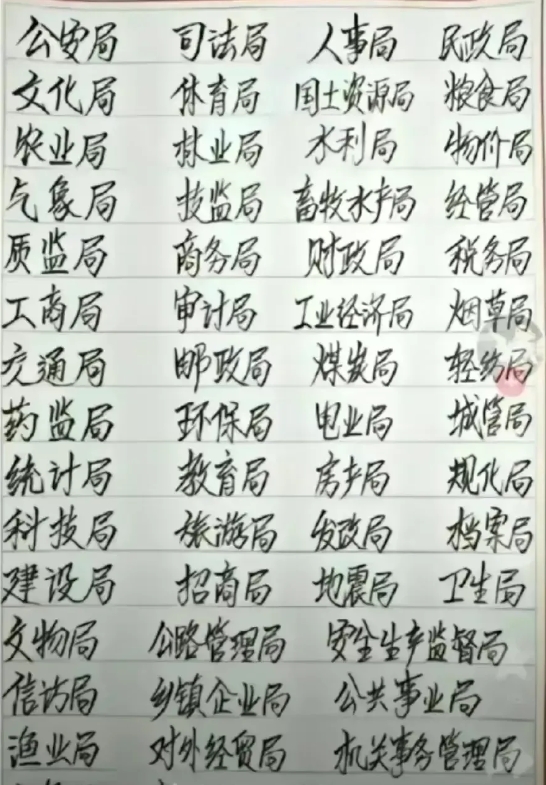 公安局 司法局 人事局 民政局
文化局 体育局 国土资源局 粮食局
农业局 林业局 水利局 物价局
气象局 技监局 畜牧水产局 经管局
质监局 商务局 财政局 税务局
工商局 审计局 工业经济局 烟草局
交通局 邮政局 煤炭局 轻纺局
药监局 环保局 电业局 城管局
统计局 教育局 房产局 规化局
科技局 旅游局 发改局 档案局
建设局 招商局 地震局 卫生局
文物局 公路管理局 安全生产监督局
信访局 乡镇企业局 公共事业局
渔业局 对外经贸局 机关事务管理局